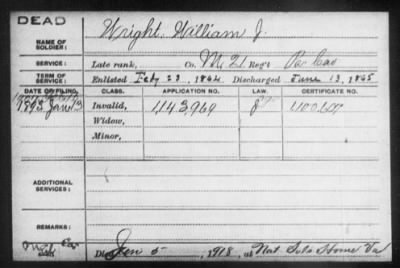 DEAD
NAME OF SOLDIER: Wright, William J.
SERVICE: Late rank, Co. M. 21 Reg't Pa Cav
TERM OF SERVICE: Enlisted Feby 23, 1864 Discharged June 13, 1865
DATE OF FILING. CLASS. APPLICATION NO. LAW. CERTIFICATE NO.
1893 Jan 13 Invalid, 1143,969
Widow,
Minor,
ADDITIONAL SERVICES:
REMARKS:
Died Jan 5, 1918, at Nat Sols Home Va